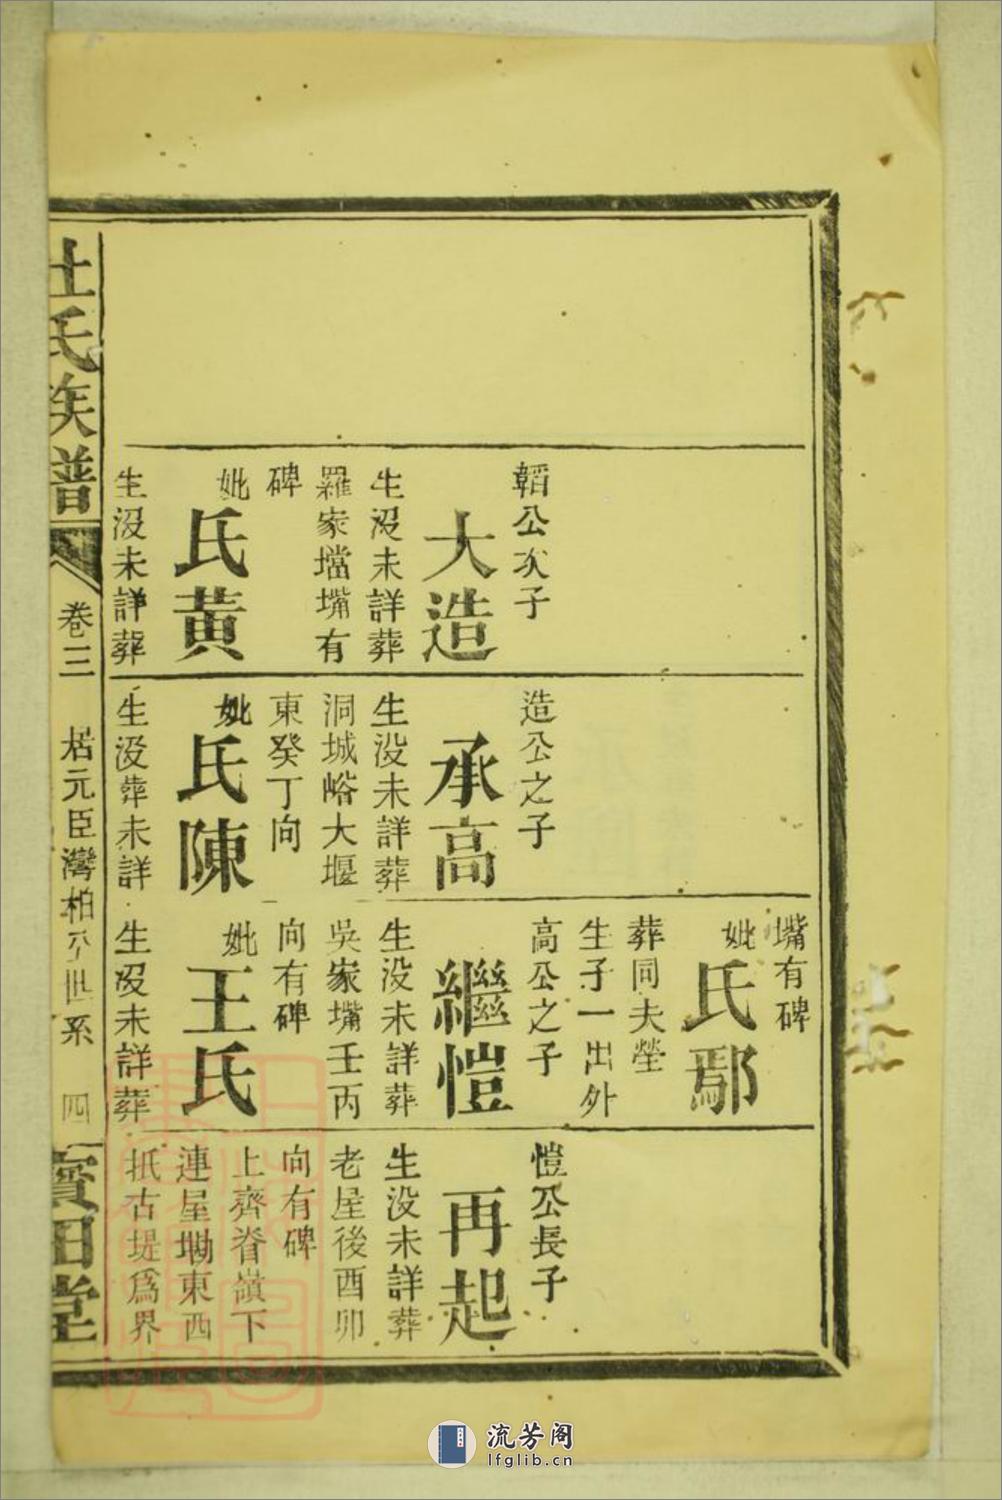 韜公次子
大造
生沒未詳葬
羅家壋嘴有
碑
妣
氏黃
生沒未詳葬
造公之子
承高
生沒未詳葬
洞城峪大堰
東癸丁向
妣
氏陳
生沒葬未詳
嘴有碑
妣
氏鄢
葬同夫塋
生子一出外
高公之子
繼愷
生沒未詳葬
吳家嘴壬丙
向有碑
妣
王氏
生沒未詳葬
愷公長子
再起
生沒未詳葬
老屋後酉卯
向有碑
上齊脊嶺下
連屋坳東西
抵古堤爲界
杜氏族譜
卷三
居元臣灣柏公世系
四
寶田堂
流芳阁
lfglib.cn